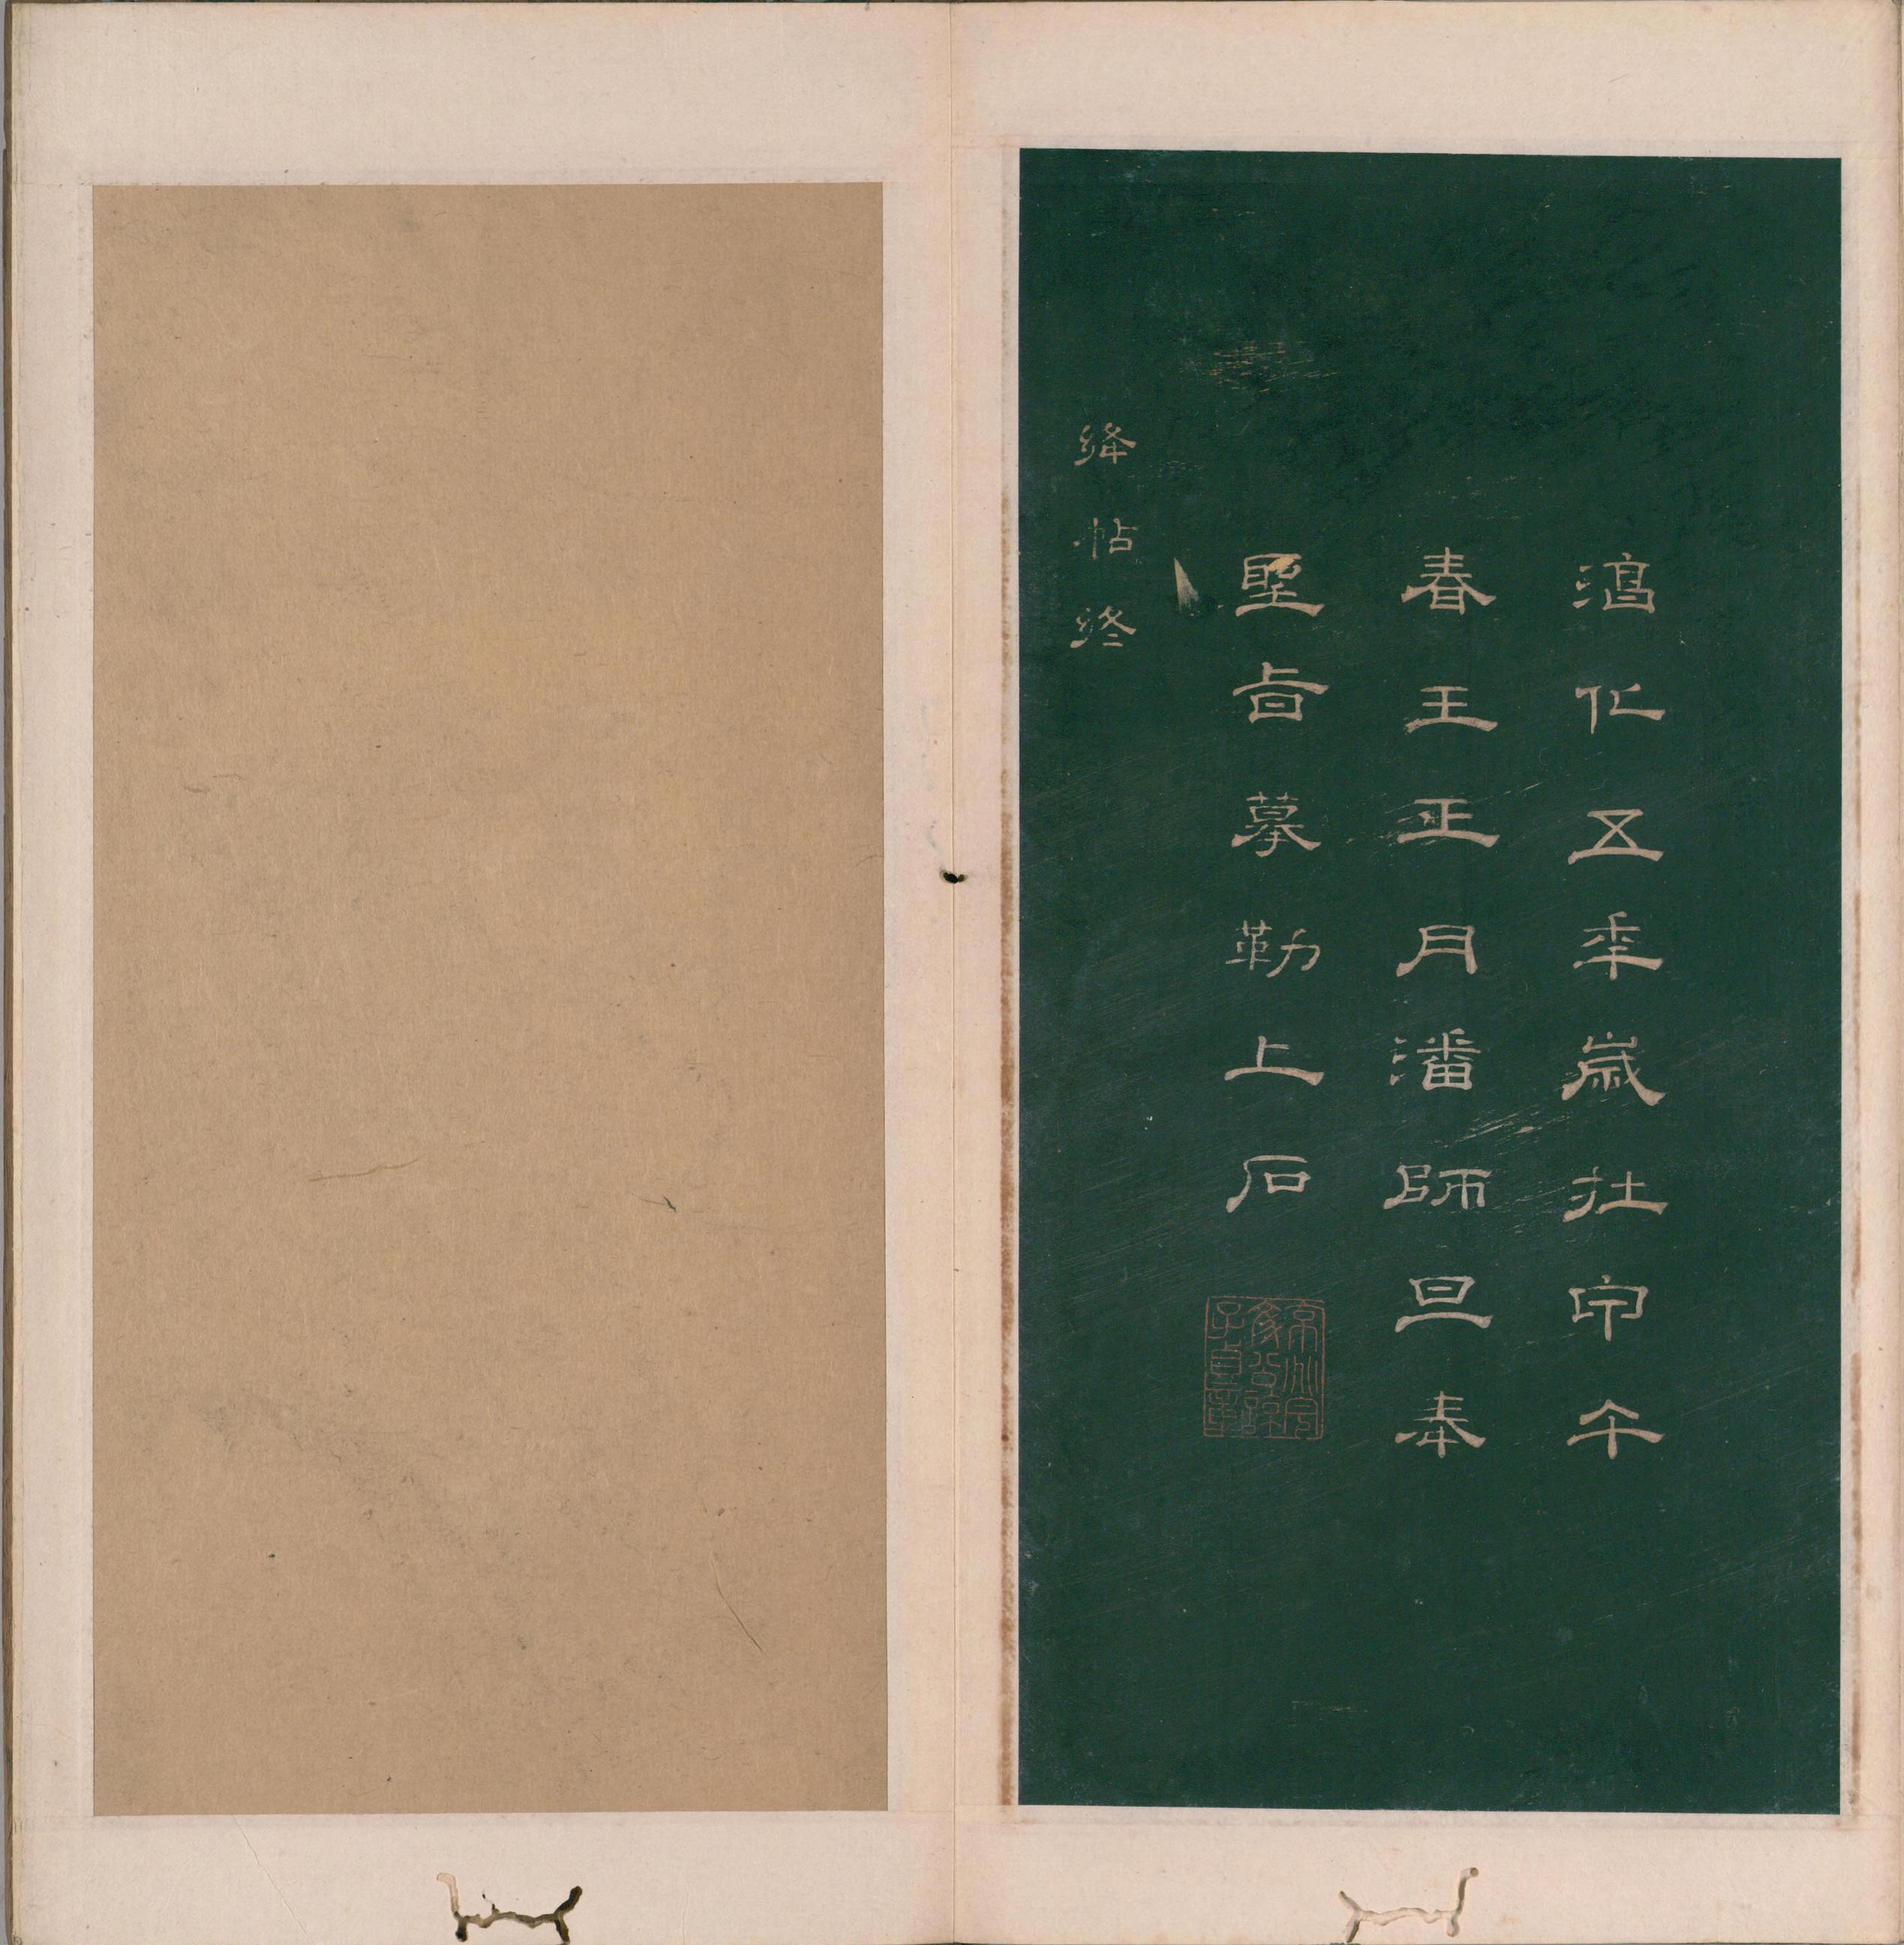 淳化五年歲在甲午
春王正月潘師旦奉
聖旨摹勒上石
絳帖終